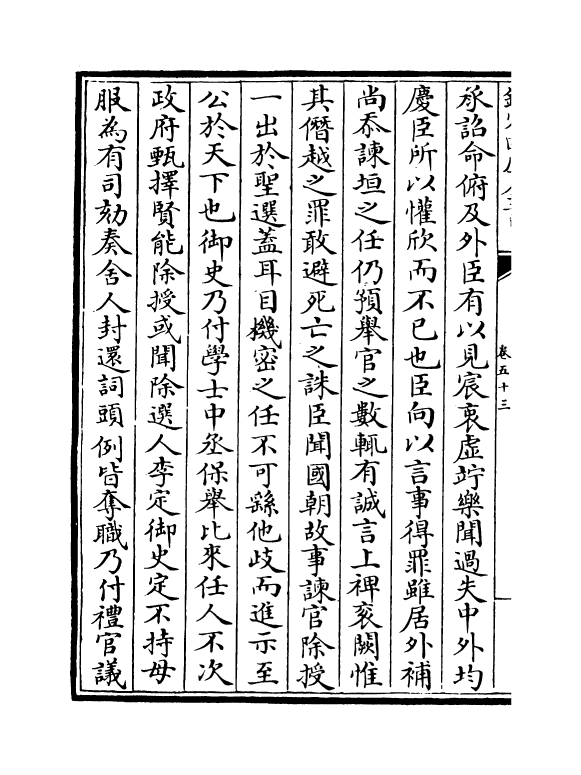 承詔命俯及外臣有以見宸衷虛竚樂聞過失中外均
慶臣所以懽欣而不已也臣向以言事得罪雖居外補
尚忝諫垣之任仍預舉官之數輒有誠言上裨衮闕惟
其僭越之罪敢避死亡之誅臣聞國朝故事諫官除授
一出於聖選蓋耳目機密之任不可繇他歧而進示至
公於天下也御史乃付學士中丞保舉比來任人不次
政府甄擇賢能除授或聞除選人李定御史定不持母
服為有司劾奏舍人封還詞頭例皆奪職乃付禮官議
卷五十三